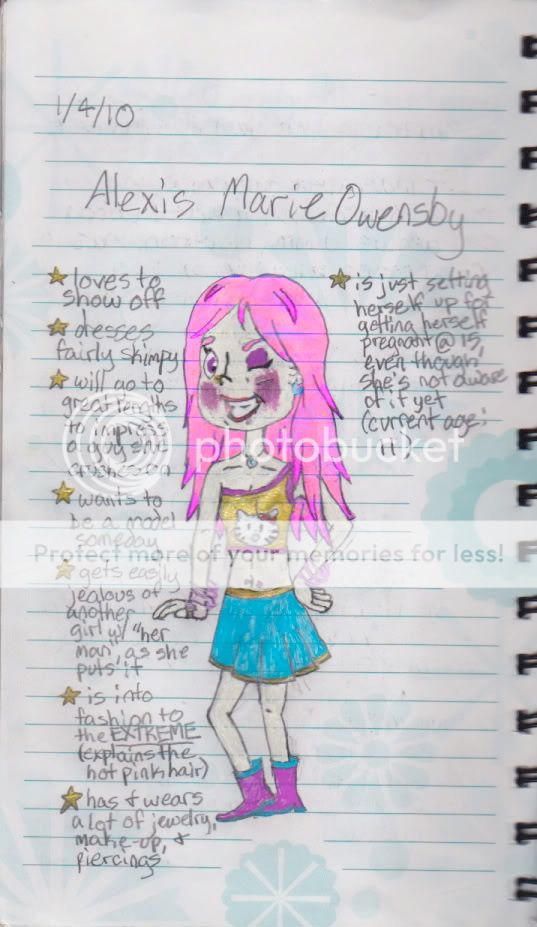 1/4/10
Alexis Marie Owensby
loves to
show off
dresses
fairly skimpy
will go to
great lengths
to impress
a guy she
crushes on
wants to
be a model
someday
gets easily
jealous of
another
girl w/ "her
man," as she
puts it
is into
fashion to
the EXTREME
(explains the
hot pink hair)
has & wears
a lot of jewelry,
make-up, &
piercings
is just setting
herself up for
getting herself
pregnant @ 15,
even though
she's not aware
of it yet
(current age:
11)
photobucket
Protect more of your memories for less!